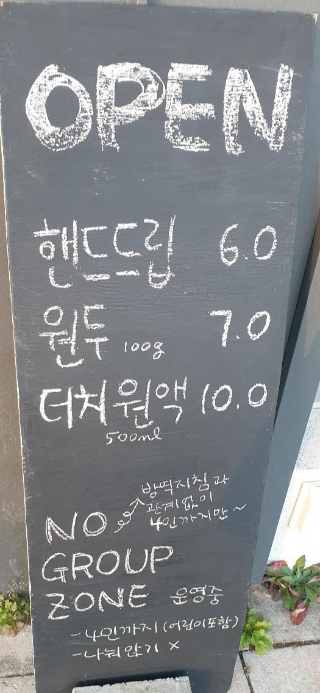 OPEN
핸드드립 6.0
원두 100g 7.0
더치원액 10.0
500ml
방역지침과
관계없이
4인까지만~
NO
GROUP
ZONE 운영중
-4인까지(어린이포함)
-나눠앉기 x